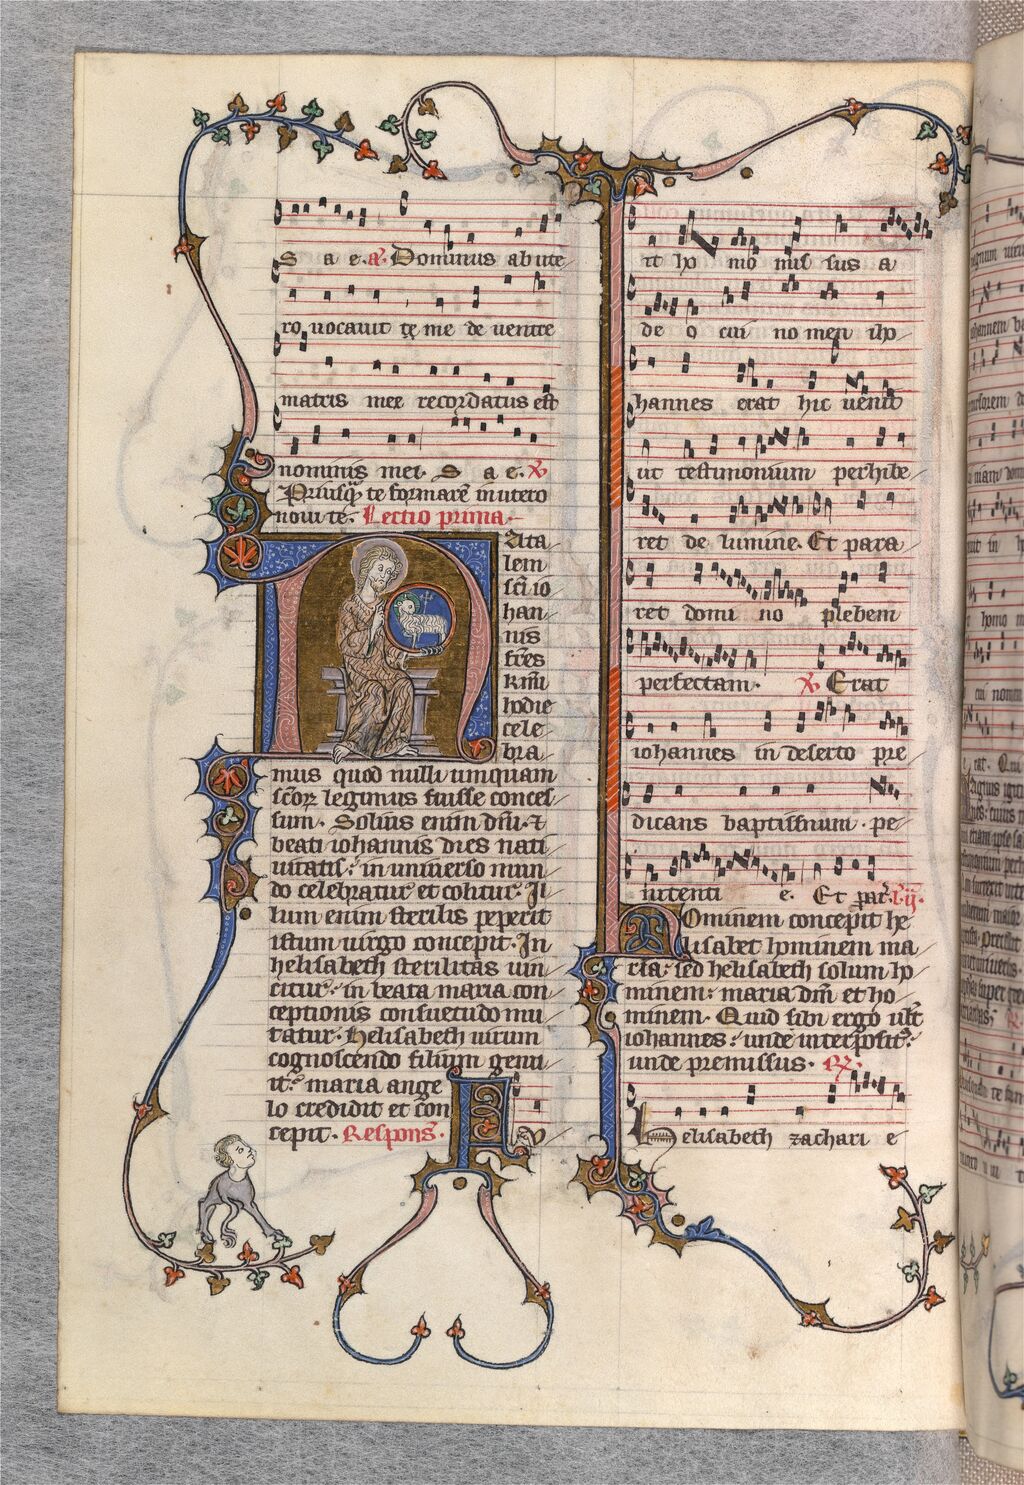 S a e. a. Dominus ab ute
ro uocauit me de uentre
matris mee recordatus est
nominis mei. S a e. V
Priusq te formarē in utero
noui te. Lectio prima.
NAta
lem
scī io
han
nis
frēs
kmī
hodie
cele
bra
mus quod nulli umquam
scōꝝ legimus fuisse conces
sum. Solius enim dnī ⁊
beati iohannis dies nati
uitatis: in uniuerso mun
do celebratur et colitur. Il
lum enim sterilis peperit
istum uirgo concepit. In
helisabeth sterilitas uin
citur: in beata maria con
ceptionis consuetudo mu
tatur. Helisabeth uirum
cognoscendo filium genu
it: maria ange
lo credidit et con
cepit. Respons. F
it ho mo mis sus a
de o cui no men io
hannes erat hic uenit
ut testimonium perhibe
ret de lumine. Et para
ret domi no plebem
perfectam. V Erat
iohannes in deserto pre
dicans baptismum. pe
nitenti e. Et par. l. ij.
HOminem concepit he
lisabet hominem ma
ria: sed helisabeth solum ho
minem: maria dm̄ et ho
minem. Quid sibi ergo uꝉt
iohannes: unde interposit:
unde premissus. R.
Helisabeth zachari e